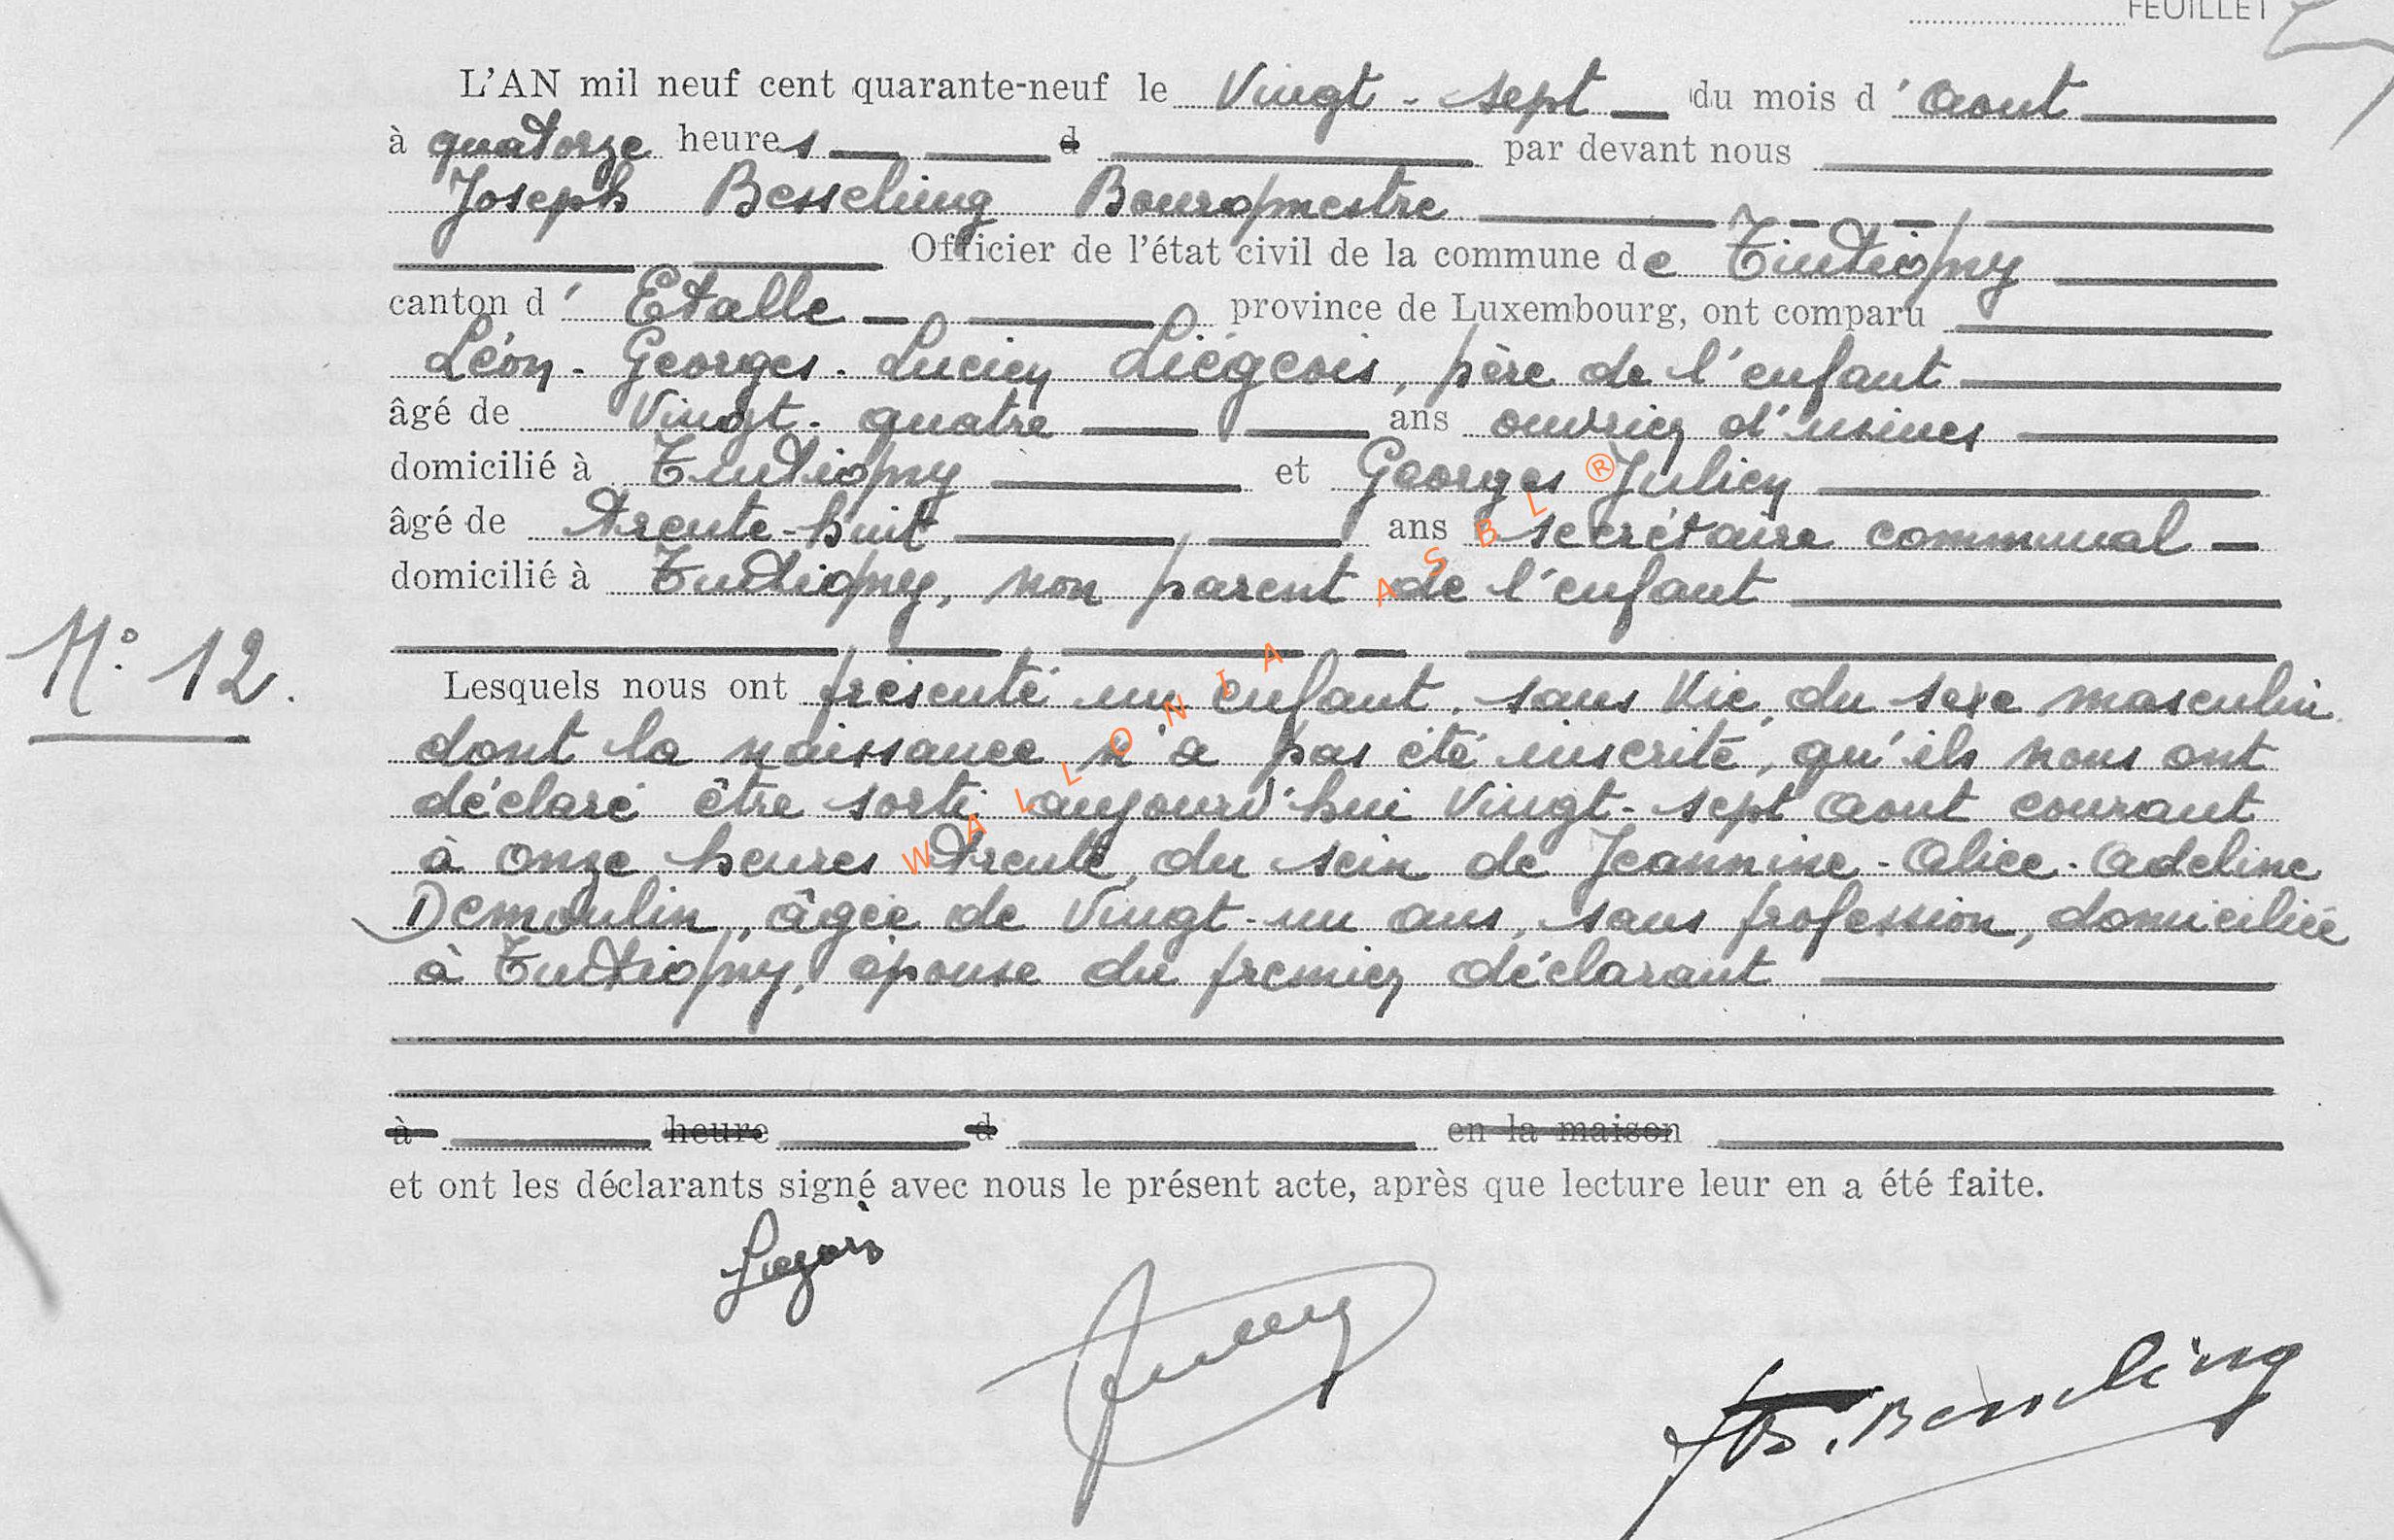 FEUILLET
L'AN mil neuf cent quarante-neuf le Vingt - sept du mois d' Aout
à quatorze heures d par devant nous
Joseph Besseling Bourgmestre
Officier de l'état civil de la commune de Tintigny
canton d' Etalle province de Luxembourg, ont comparu
Léon - Georges - Lucien Liégeois, père de l'enfant
âgé de Vingt - quatre ans ouvrier d'usines
domicilié à Tintigny et Georges Julien
âgé de trente-huit ans secrétaire communal
domicilié à Tintigny, non parent de l'enfant
N° 12.
Lesquels nous ont présenté un enfant, sans vie, du sexe masculin
dont la naissance n'a pas été inscrite, qu'ils nous ont
déclaré être sorti aujourd'hui Vingt - sept Aout courant
à onze heures trente, du sein de Jeannine - Alice - Adeline
Demoulin, âgée de Vingt-un ans, sans profession, domiciliée
à Tintigny, épouse du premier déclarant
à heure d en la maison
et ont les déclarants signé avec nous le présent acte, après que lecture leur en a été faite.
Liegeois
Jos. Besseling
WALLONIA ASBL ®